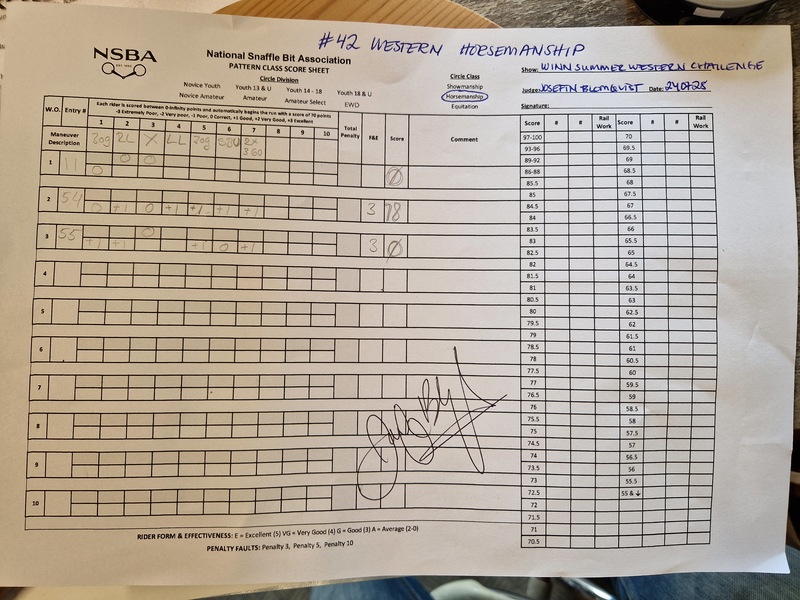 #42 WESTERN HORSEMANSHIP
NSBA
National Snaffle Bit Association
PATTERN CLASS SCORE SHEET
Circle Division
Novice Youth Youth 13 & U Youth 14 - 18 Youth 18 & U
Novice Amateur Amateur Amateur Select EWD
Circle Class
Showmanship
Horsemanship
Equitation
Show: WINN SUMMER WESTERN CHALLENGE
Judge: JOSEFIN BLOMQVIST Date: 240728
Signature:
Each rider is scored between 0-infinity points and automatically begins the run with a score of 70 points
-3 Extremely Poor, -2 Very poor, -1 Poor, 0 Correct, +1 Good, +2 Very Good, +3 Excellent
W.O. Entry # 1 2 3 4 5 6 7 8 9 10 Total Penalty F&E Score Comment
Maneuver Description 2L X LL 2x 360
1 11 0 0 0 0
2 54 0 +1 0 +1 +1 +1 +1 3 78
3 55 +1 +1 0 +1 0 +1 3 0
4
5
6
7
8
9
10
RIDER FORM & EFFECTIVENESS: E = Excellent (5) VG = Very Good (4) G = Good (3) A = Average (2-0)
PENALTY FAULTS: Penalty 3, Penalty 5, Penalty 10
Score # # Rail Work Score # # Rail Work
97-100 70
93-96 69.5
89-92 69
86-88 68.5
85.5 68
85 67.5
84.5 67
84 66.5
83.5 66
83 65.5
82.5 65
82 64.5
81.5 64
81 63.5
80.5 63
80 62.5
79.5 62
79 61.5
78.5 61
78 60.5
77.5 60
77 59.5
76.5 59
76 58.5
75.5 58
75 57.5
74.5 57
74 56.5
73.5 56
73 55.5
72.5 55 & ↓
72
71.5
71
70.5